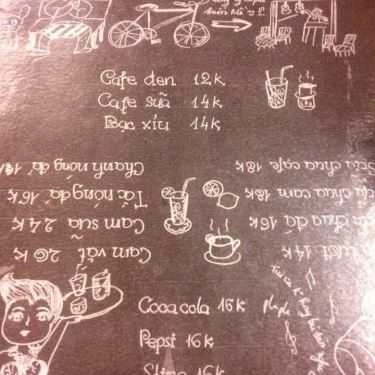 Cafe đen 12K
Cafe sữa 14K
Bạc xíu 14K
14K
chua đá 16K
chua cam 18K
chua cafe 18K
Cam vắt 20K
Cam sữa 24K
Tắc nóng đá 16K
Chanh nóng đá
Coca cola 16K
Pepsi 16K
Sting 16K